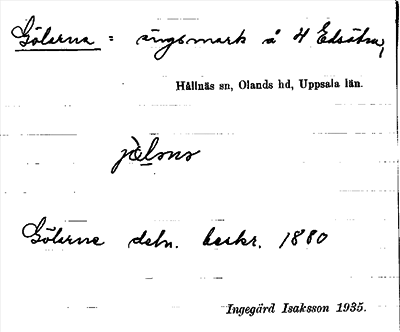 Gölerna : ängsmark å 4 Edsätra,
Hållnäs sn, Olands hd, Uppsala län.
Gölerne detn. beskr. 1880
Ingegärd Isaksson 1935.